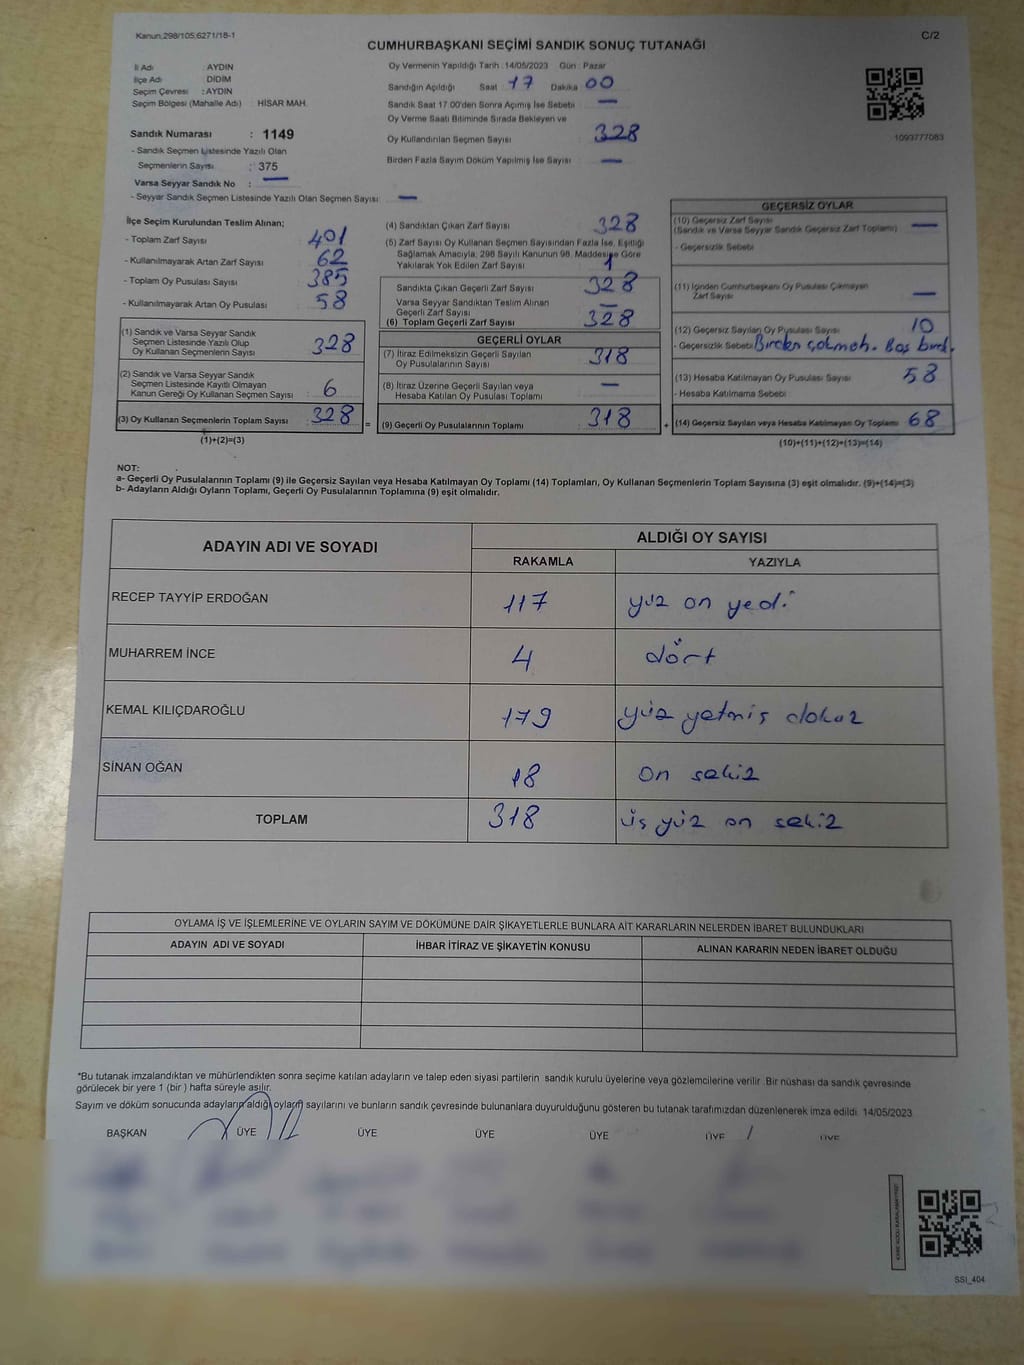 Kanun:298/105,6271/18-1
C/2
CUMHURBAŞKANI SEÇİMİ SANDIK SONUÇ TUTANAĞI
İl Adı : AYDIN
İlçe Adı : DİDİM
Seçim Çevresi : AYDIN
Seçim Bölgesi (Mahalle Adı) HİSAR MAH.
Oy Vermenin Yapıldığı Tarih :14/05/2023 Gün : Pazar
Sandığın Açıldığı Saat : 17 Dakika : 00
Sandık Saat 17:00'den Sonra Açımış İse Sebebi : —
Oy Verme Saati Bitiminde Sırada Bekleyen ve
Oy Kullandırılan Seçmen Sayısı : 328
Birden Fazla Sayım Döküm Yapılmış İse Sayısı : —
1093777083
Sandık Numarası : 1149
- Sandık Seçmen Listesinde Yazılı Olan
Seçmenlerin Sayısı : 375
Varsa Seyyar Sandık No : —
- Seyyar Sandık Seçmen Listesinde Yazılı Olan Seçmen Sayısı : —
İlçe Seçim Kurulundan Teslim Alınan;
- Toplam Zarf Sayısı : 401
- Kullanılmayarak Artan Zarf Sayısı : 62
- Toplam Oy Pusulası Sayısı : 385
- Kullanılmayarak Artan Oy Pusulası : 58
(1) Sandık ve Varsa Seyyar Sandık
Seçmen Listesinde Yazılı Olup
Oy Kullanan Seçmenlerin Sayısı : 328
(2) Sandık ve Varsa Seyyar Sandık
Seçmen Listesinde Kayıtlı Olmayan
Kanun Gereği Oy Kullanan Seçmen Sayısı : 6
(3) Oy Kullanan Seçmenlerin Toplam Sayısı : 328 =
(1)+(2)=(3)
(4) Sandıktan Çıkan Zarf Sayısı : 328
(5) Zarf Sayısı Oy Kullanan Seçmen Sayısından Fazla İse, Eşitliği
Sağlamak Amacıyla, 298 Sayılı Kanunun 98. Maddesine Göre
Yakılarak Yok Edilen Zarf Sayısı : 1
Sandıkta Çıkan Geçerli Zarf Sayısı : 328
Varsa Seyyar Sandıktan Teslim Alınan
Geçerli Zarf Sayısı : —
(6) Toplam Geçerli Zarf Sayısı : 328
GEÇERLİ OYLAR
(7) İtiraz Edilmeksizin Geçerli Sayılan
Oy Pusulalarının Sayısı : 318
(8) İtiraz Üzerine Geçerli Sayılan veya
Hesaba Katılan Oy Pusulası Toplamı : —
(9) Geçerli Oy Pusulalarının Toplamı : 318 +
GEÇERSİZ OYLAR
(10) Geçersiz Zarf Sayısı
(Sandık ve Varsa Seyyar Sandık Geçersiz Zarf Toplamı) : —
- Geçersizlik Sebebi :
(11) İçinden Cumhurbaşkanı Oy Pusulası Çıkmayan
Zarf Sayısı : —
(12) Geçersiz Sayılan Oy Pusulası Sayısı : 10
- Geçersizlik Sebebi :
(13) Hesaba Katılmayan Oy Pusulası Sayısı : 58
- Hesaba Katılmama Sebebi :
(14) Geçersiz Sayılan veya Hesaba Katılmayan Oy Toplamı : 68
(10)+(11)+(12)+(13)=(14)
NOT:
a- Geçerli Oy Pusulalarının Toplamı (9) ile Geçersiz Sayılan veya Hesaba Katılmayan Oy Toplamı (14) Toplamları, Oy Kullanan Seçmenlerin Toplam Sayısına (3) eşit olmalıdır. (9)+(14)=(3)
b- Adayların Aldığı Oyların Toplamı, Geçerli Oy Pusulalarının Toplamına (9) eşit olmalıdır.
ADAYIN ADI VE SOYADI ALDIĞI OY SAYISI
RAKAMLA YAZIYLA
RECEP TAYYİP ERDOĞAN 117 yüz on yedi
MUHARREM İNCE 4 dört
KEMAL KILIÇDAROĞLU 179 yüz yetmiş dokuz
SİNAN OĞAN 18 on sekiz
TOPLAM 318 üç yüz on sekiz
OYLAMA İŞ VE İŞLEMLERİNE VE OYLARIN SAYIM VE DÖKÜMÜNE DAİR ŞİKAYETLERLE BUNLARA AİT KARARLARIN NELERDEN İBARET BULUNDUKLARI
ADAYIN ADI VE SOYADI İHBAR İTİRAZ VE ŞİKAYETİN KONUSU ALINAN KARARIN NEDEN İBARET OLDUĞU
*Bu tutanak imzalandıktan ve mühürlendikten sonra seçime katılan adayların ve talep eden siyasi partilerin sandık kurulu üyelerine veya gözlemcilerine verilir. Bir nüshası da sandık çevresinde
görülecek bir yere 1 (bir ) hafta süreyle asılır.
Sayım ve döküm sonucunda adayların aldığı oyların sayılarını ve bunların sandık çevresinde bulunanlara duyurulduğunu gösteren bu tutanak tarafımızdan düzenlenerek imza edildi. 14/05/2023
BAŞKAN ÜYE ÜYE ÜYE ÜYE ÜYE ÜYE
SSI_404